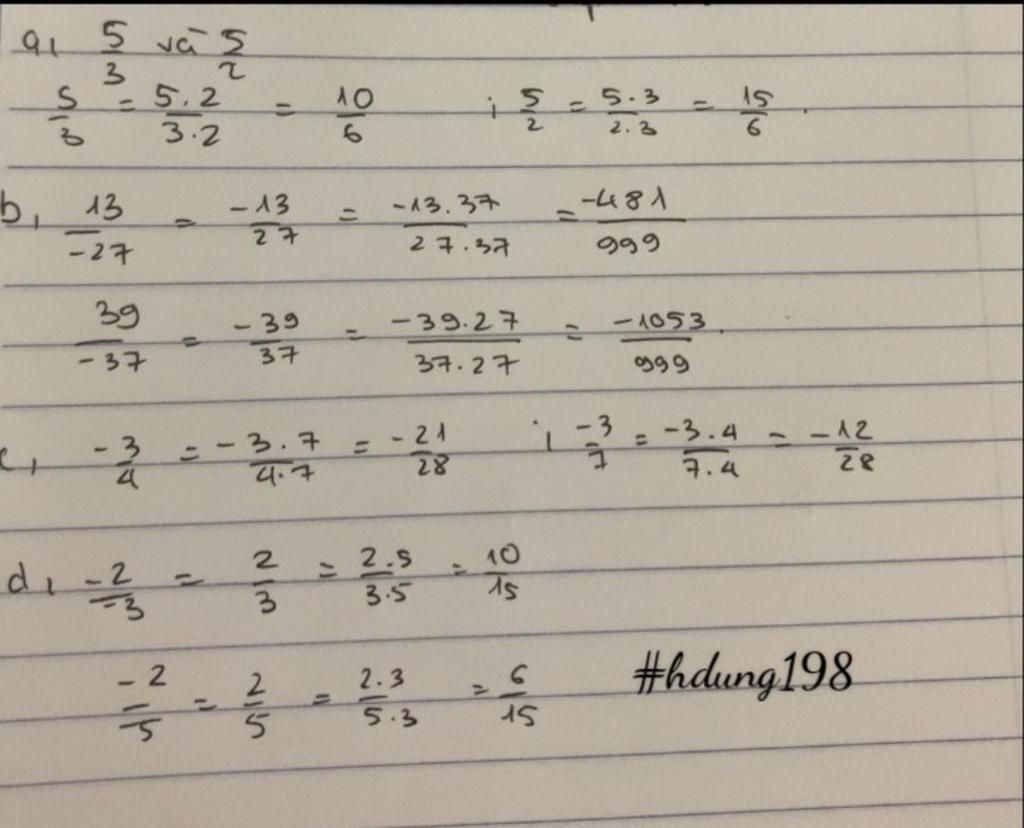 a, 5/3 và 5/2
5/3 = 5.2/3.2 = 10/6 ; 5/2 = 5.3/2.3 = 15/6.
b, 13/-27 = -13/27 = -13.37/27.37 = -481/999
39/-37 = -39/37 = -39.27/37.27 = -1053/999.
c, -3/4 = -3.7/4.7 = -21/28 ; -3/7 = -3.4/7.4 = -12/28
d, -2/-3 = 2/3 = 2.5/3.5 = 10/15
-2/-5 = 2/5 = 2.3/5.3 = 6/15
#hdung198